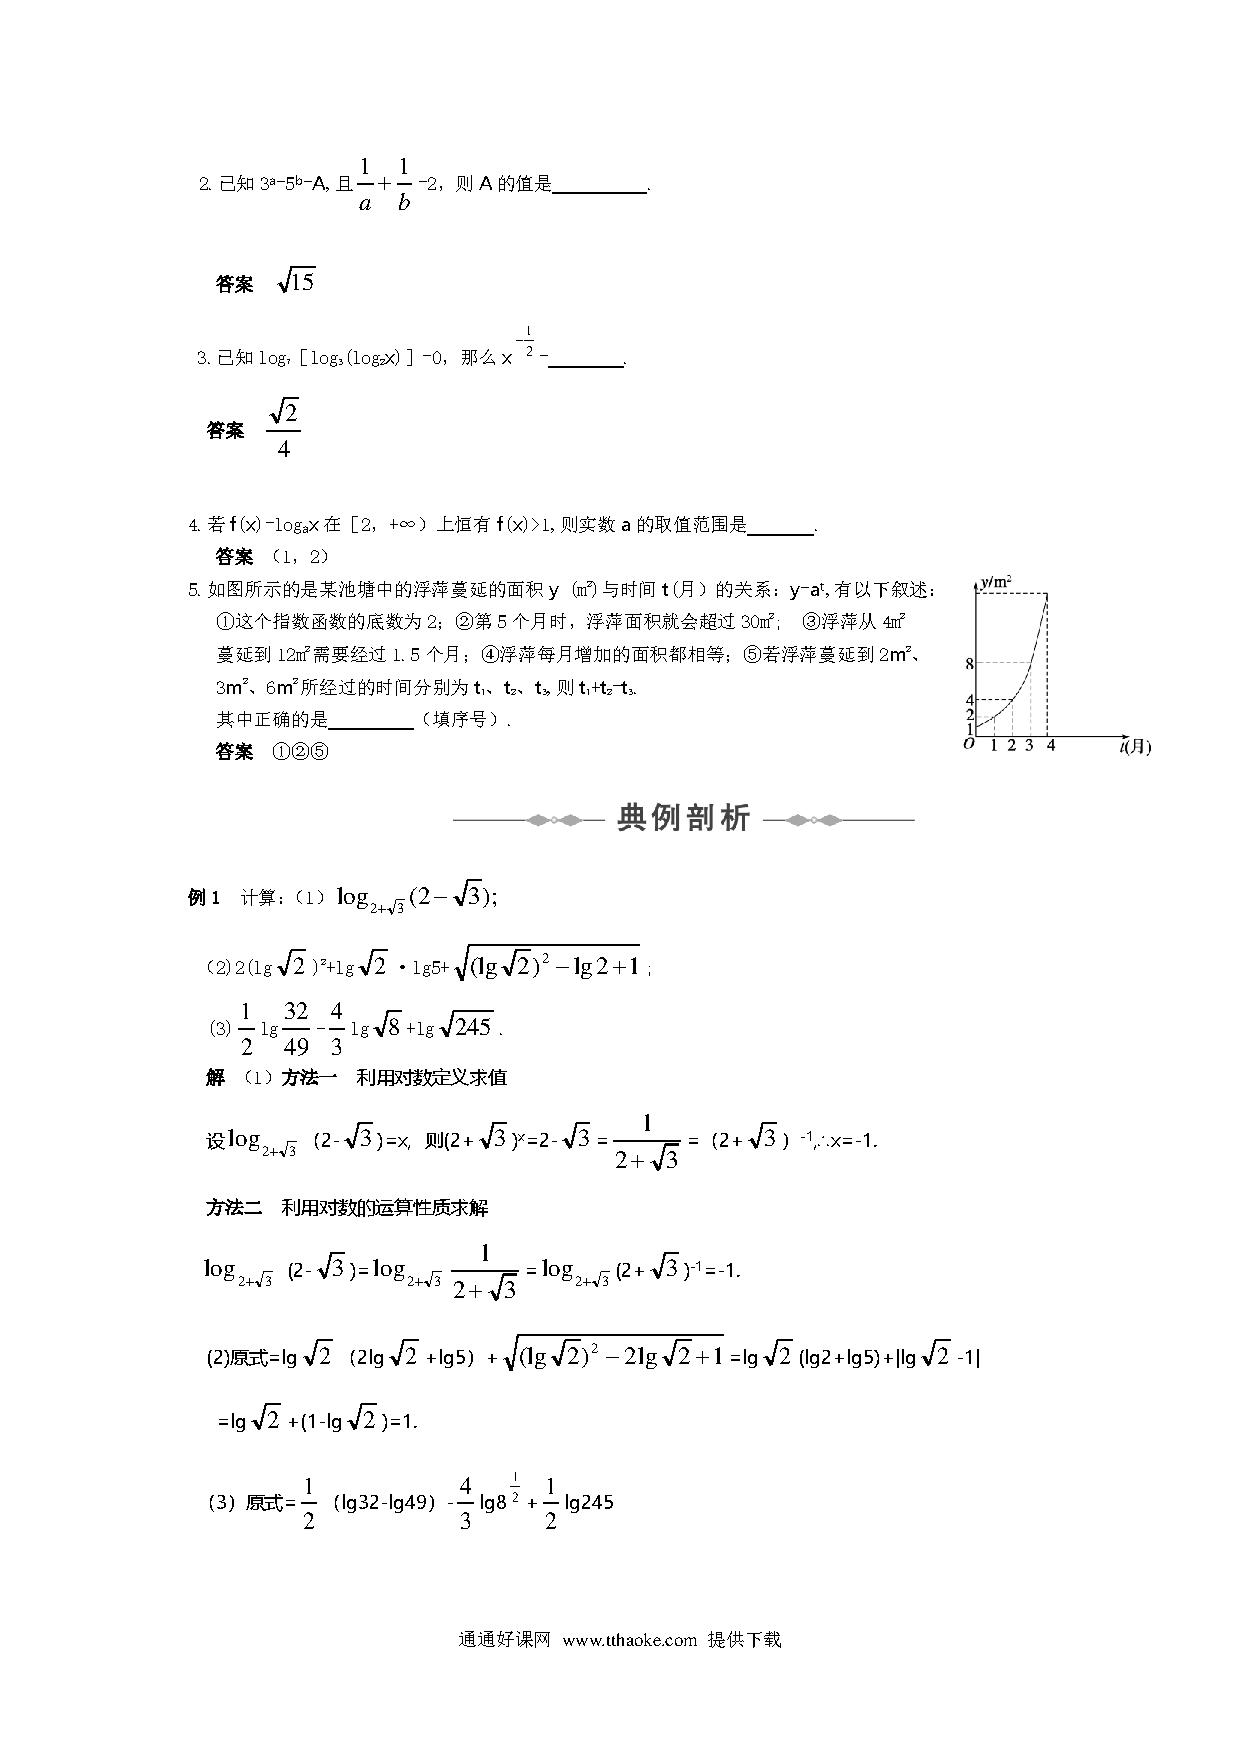 2.已知3ᵃ=5ᵇ=A,且1/a+1/b=2，则A的值是__________.
答案 √15
3.已知log₇［log₃(log₂x)］=0，那么x^(-1/2)=________.
答案 √2/4
4.若f(x)=logₐx在［2，+∞）上恒有f(x)>1,则实数a的取值范围是_______.
答案 （1，2）
5.如图所示的是某池塘中的浮萍蔓延的面积y（m²)与时间t(月）的关系：y=aᵗ,有以下叙述：
①这个指数函数的底数为2；②第5个月时，浮萍面积就会超过30m²； ③浮萍从4m²
蔓延到12m²需要经过1.5个月；④浮萍每月增加的面积都相等；⑤若浮萍蔓延到2m²、
3m²、6m²所经过的时间分别为t₁、t₂、t₃,则t₁+t₂=t₃.
其中正确的是_________（填序号）.
答案 ①②⑤
y/m²
8
4
2
1
O 1 2 3 4 t(月)
典例剖析
例1 计算:（1）log_(2+√3)(2−√3);
（2)2(lg√2)²+lg√2·lg5+√((lg√2)²−lg2+1);
(3)1/2lg32/49-4/3lg√8+lg√245.
解 （1）方法一 利用对数定义求值
设log_(2+√3)（2-√3)=x, 则(2+√3)ˣ=2-√3=1/(2+√3)=（2+√3）⁻¹,∴x=-1.
方法二 利用对数的运算性质求解
log_(2+√3)(2-√3)=log_(2+√3) 1/(2+√3)=log_(2+√3)(2+√3)⁻¹=-1.
(2)原式=lg√2（2lg√2+lg5）+√((lg√2)²−2lg√2+1)=lg√2(lg2+lg5)+|lg√2-1|
=lg√2+(1-lg√2)=1.
（3）原式=1/2（lg32-lg49）-4/3lg8^(1/2)+1/2lg245
通通好课网 www.tthaoke.com 提供下载